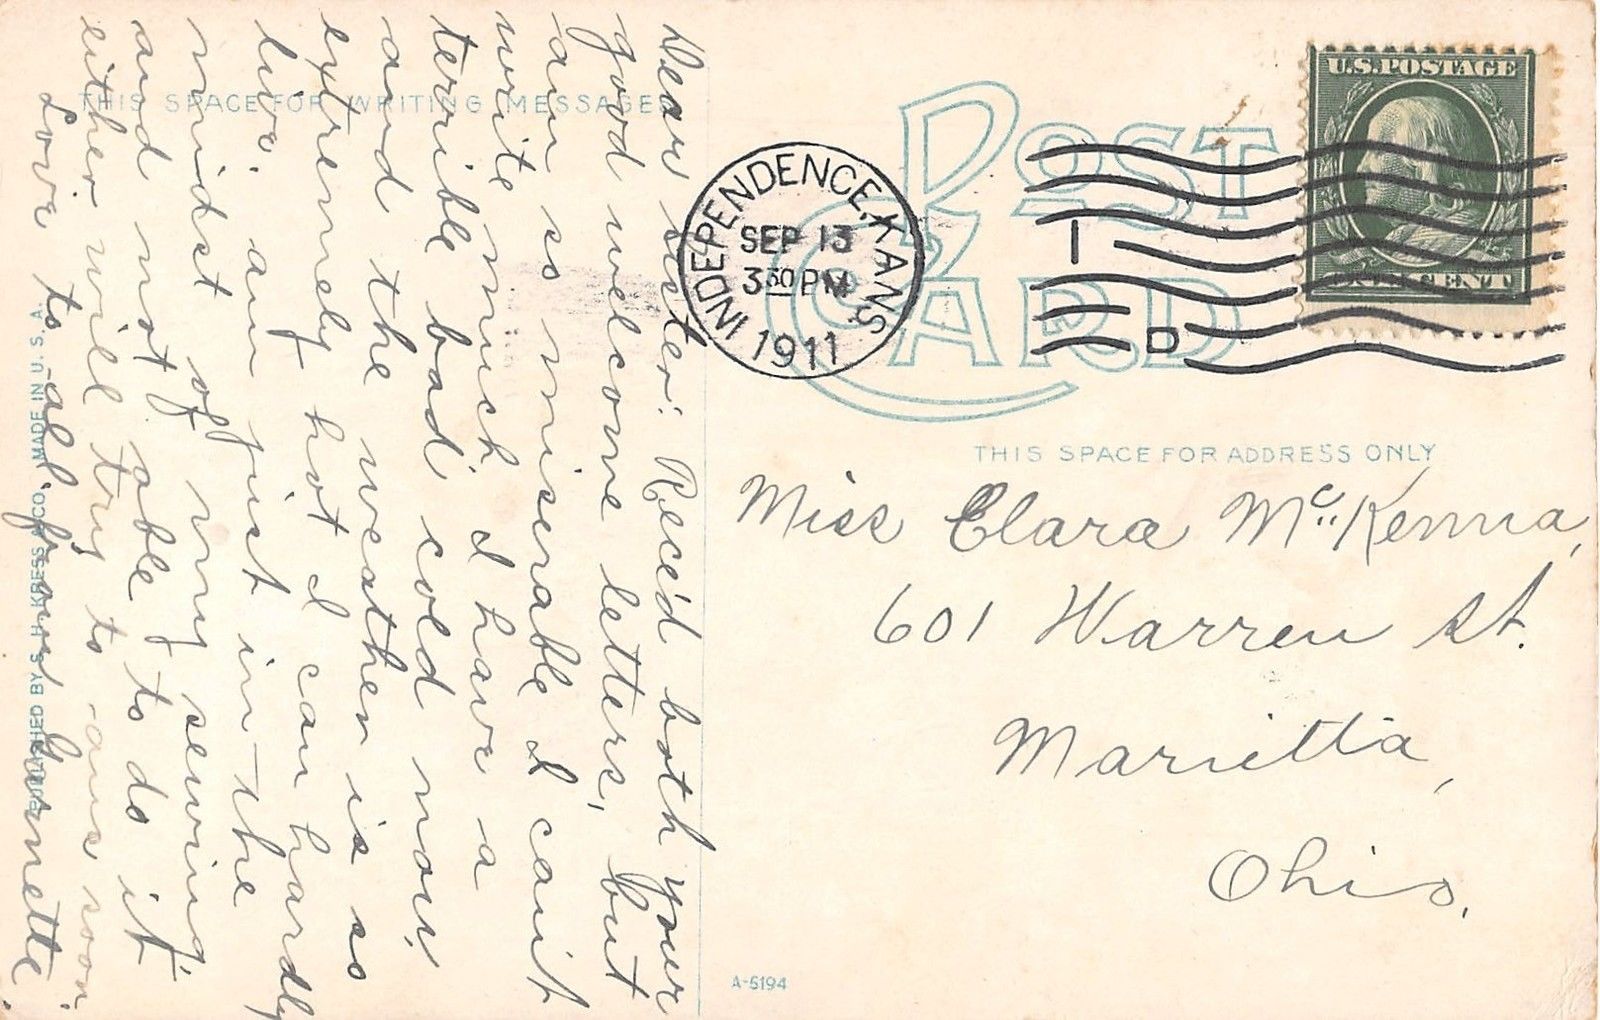 THIS SPACE FOR WRITING MESSAGES
Dear sister: Rece'd both your
good welcome letters, but
am so miserable I can't
write much I have a
terrible bad cold now,
and the weather is so
extremely hot I can hardly
live. am just in the
midst of my sewing,
and not able to do it
either will try to ans soon.
Love to all from Garnette.
PUBLISHED BY S. H. KRESS & CO. MADE IN U. S. A.
POST CARD
INDEPENDENCE, KANS.
SEP 13
3 30 PM
1911
1
D
U.S. POSTAGE
ONE CENT
THIS SPACE FOR ADDRESS ONLY
Miss Clara McKenna,
601 Warren St.
Marietta,
Ohio.
A-5194